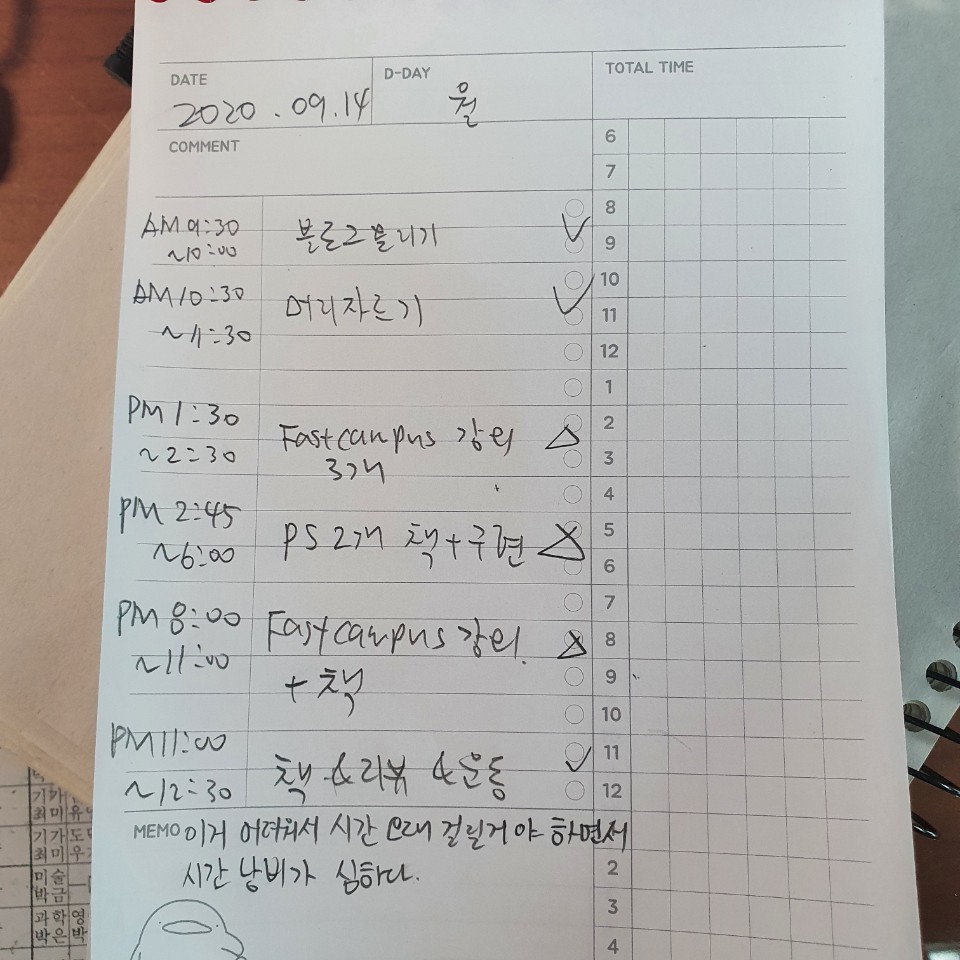 DATE
D-DAY
TOTAL TIME
2020.09.14
월
COMMENT
6
7
8
9
10
11
12
1
2
3
4
5
6
7
8
9
10
11
12
2
3
4
AM 9:30
~10:00
블로그 올리기
AM 10:30
~11:30
머리자르기
PM 1:30
~2:30
Fastcanpus 강의
3개
PM 2:45
~6:00
PS 2개 책+구현
PM 8:00
~11:00
Fastcampus 강의
+ 책
PM 11:00
~12:30
책 & 리뷰 & 운동
MEMO 이거 어려워서 시간 오래 걸릴거야 하면서
시간 낭비가 심하다.
기가
최미
기가도
최미우
미술
박금
과학영
박은박